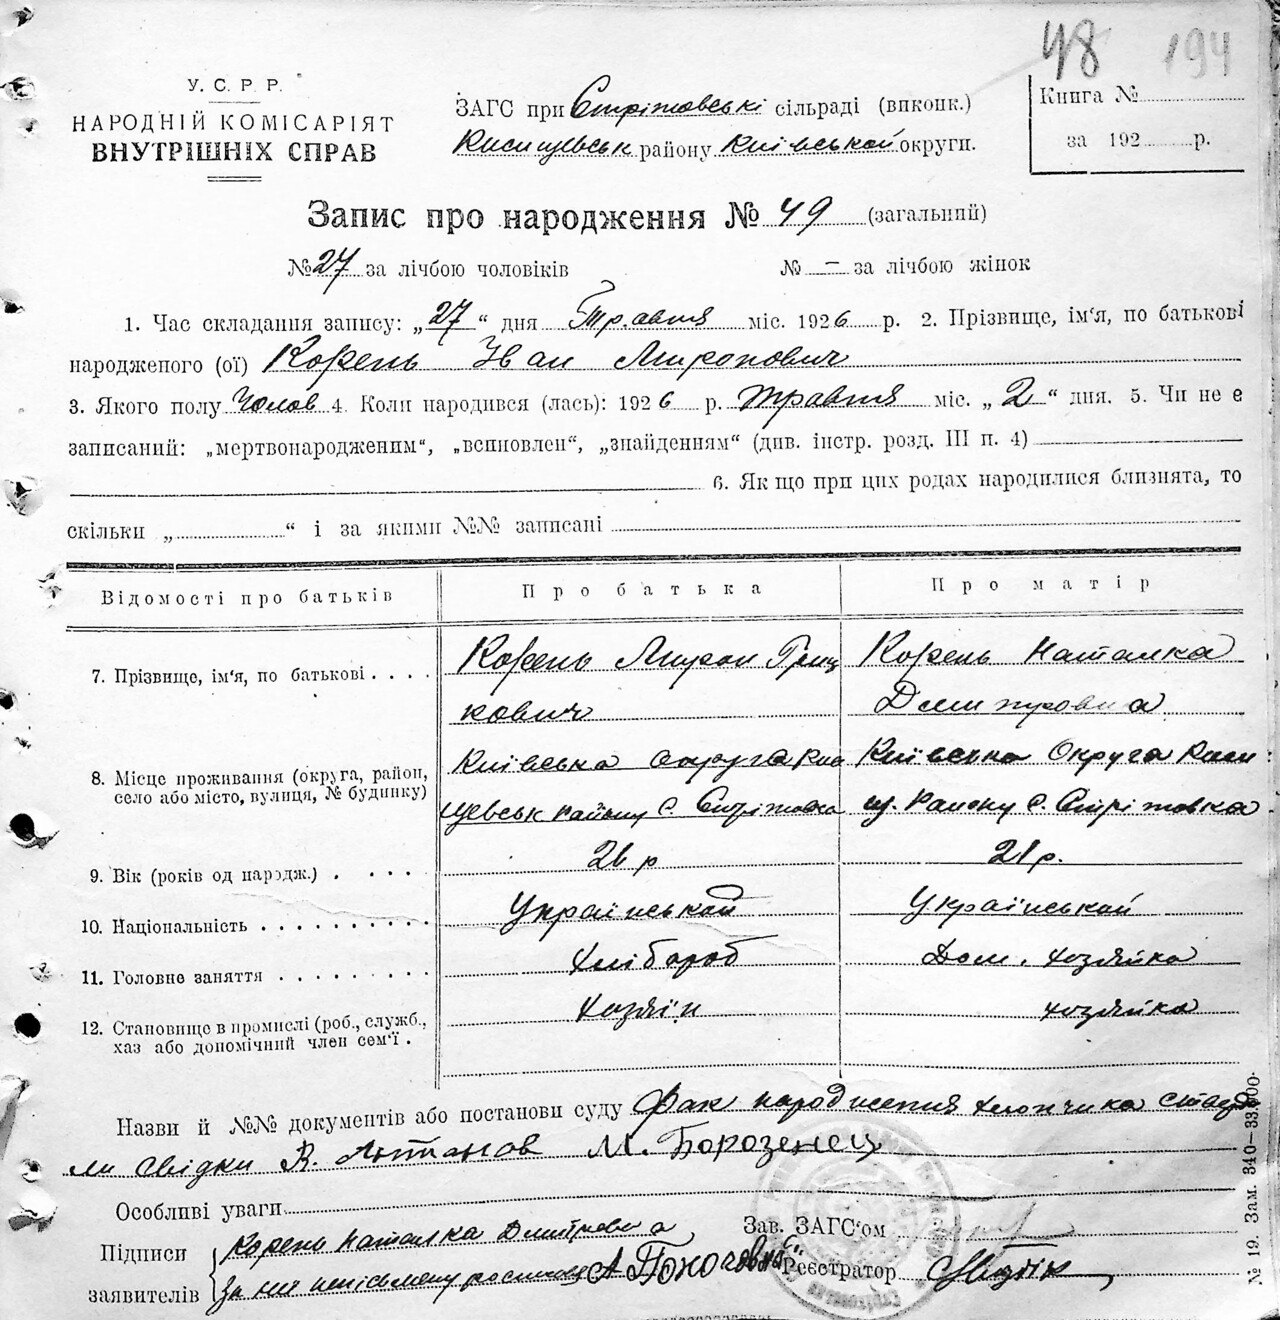 48 194
У. С. Р. Р.
НАРОДНІЙ КОМІСАРІЯТ
ВНУТРІШНІХ СПРАВ
ЗАГС при Стрітовські сільраді (виконк.)
Кисищевськ району Київськой округи.
Книга №
за 192 р.
Запис про народження № 49 (загальний)
№ 27 за лічбою чоловіків № – за лічбою жінок
1. Час складання запису: „27“ дня Травня міс. 1926 р. 2. Прізвище, ім'я, по батькові
народженого (ої) Корень Іван Миронович
3. Якого полу Чолов 4. Коли народився (лась): 1926 р. травня міс. „2“ дня. 5. Чи не є
записаний: „мертвонародженим“, „всиновлен“, „знайденням“ (див. інстр. розд. III п. 4)
6. Якщо при цих родах народилися близнята, то
скільки „ “ і за якими №№ записані
Відомості про батьків Про батька Про матір
7. Прізвище, ім'я, по батькові . . . . Корень Мирон Гриц Корень Наталка
кович Дмитровна
8. Місце проживання (округа, район, Київська округа Киси Київська Округа Киси
село або місто, вулиця, № будинку) щевськ району с. Стрітовка щ. Району с. Стрітовка
9. Вік (років од народж.) . . . . . 26 р 21 р.
10. Національність . . . . . . . . . . Українськой Українськой
11. Головне заняття . . . . . . . . . Хлібороб Дом. хозяйка
12. Становище в промислі (роб., служб., хозяїн хозяйка
хаз або допомічний член сем'ї .
Назви й №№ документів або постанови суду Фак народження хлопчика ствер
ли свідки В. М. Борозенец
Особливі уваги
Підписи Корень Наталка Дмитровна Зав. ЗАГС'ом
заявителів За неї неписьмену росписався А Реєстратор
№ 19. Зам. 340—33.000.